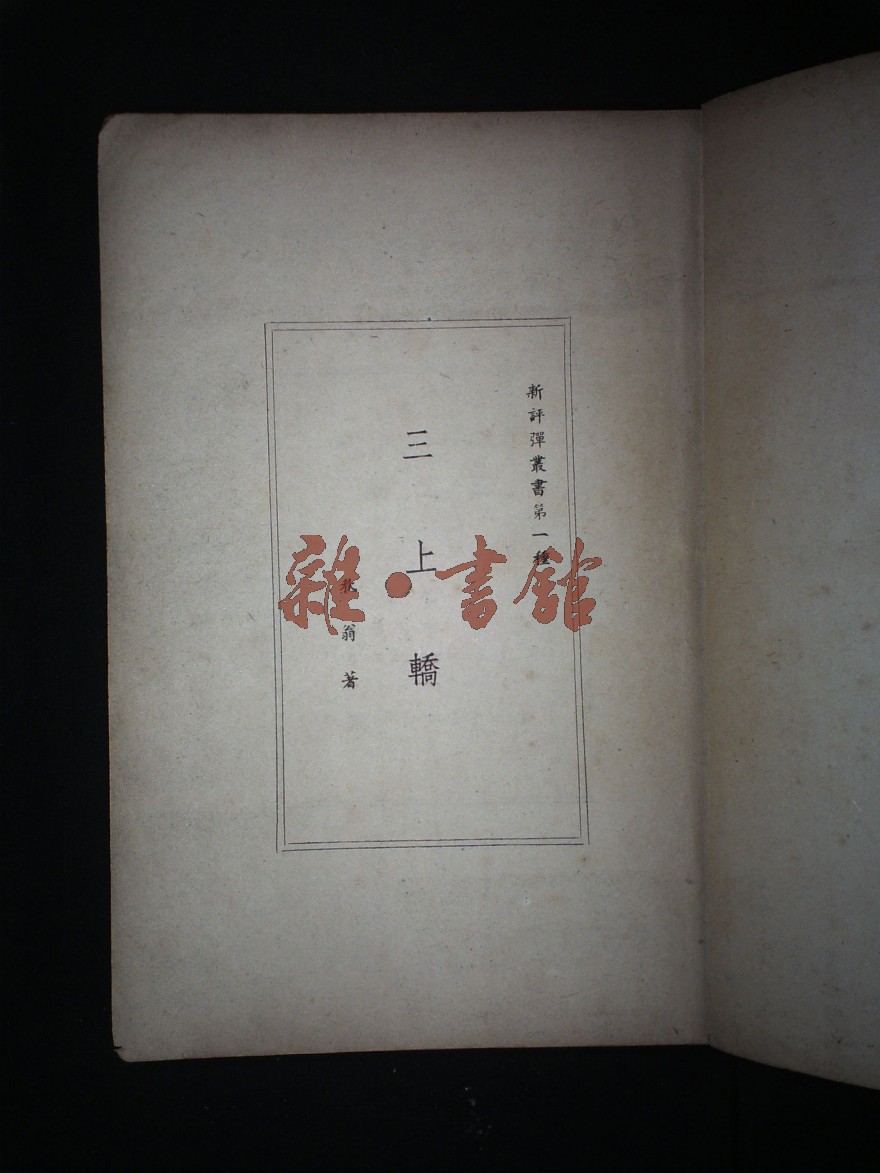 新評彈叢書第一種
三上轎
翁著
雜·書館